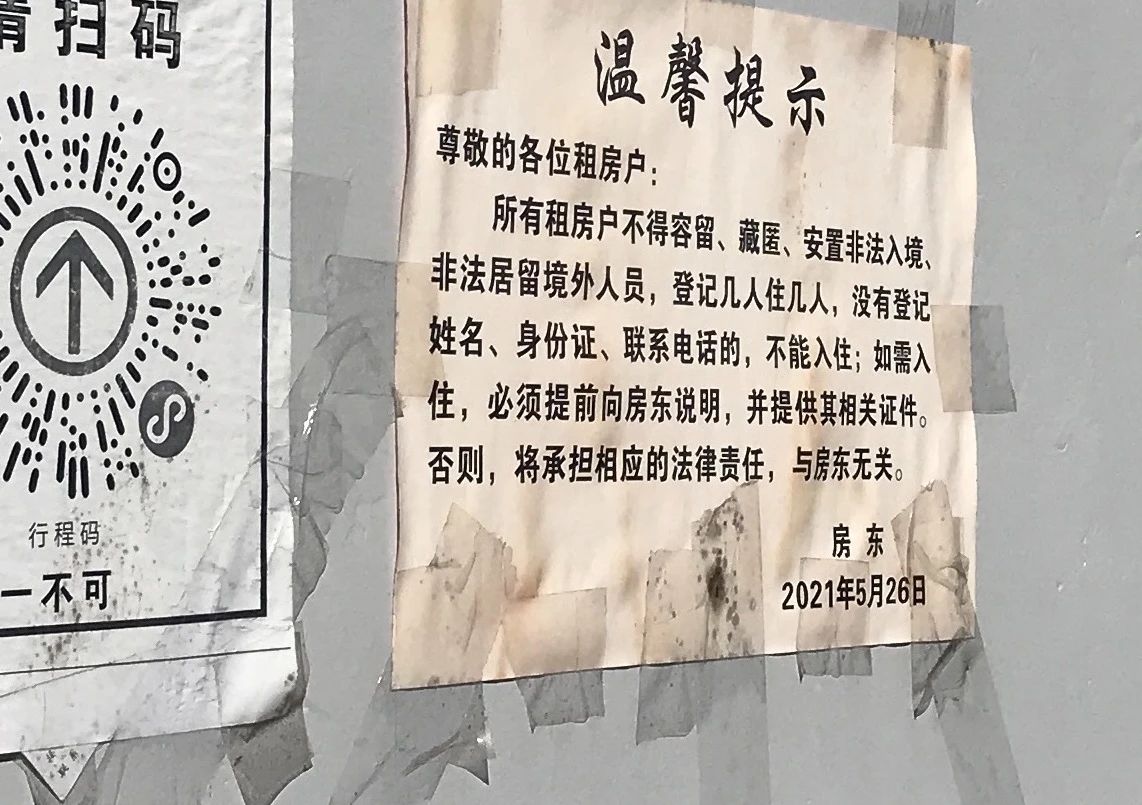 请扫码
行程码
一不可
温馨提示
尊敬的各位租房户：
所有租房户不得容留、藏匿、安置非法入境、
非法居留境外人员，登记几人住几人，没有登记
姓名、身份证、联系电话的，不能入住；如需入
住，必须提前向房东说明，并提供其相关证件。
否则，将承担相应的法律责任，与房东无关。
房东
2021年5月26日